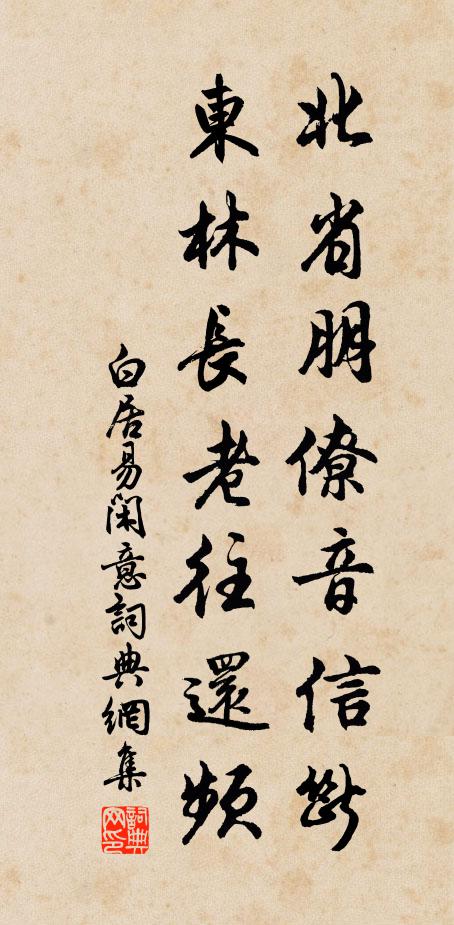 北省朋僚音信斷
東林長老往還頻
白居易閑意詞典網集
詞典網印